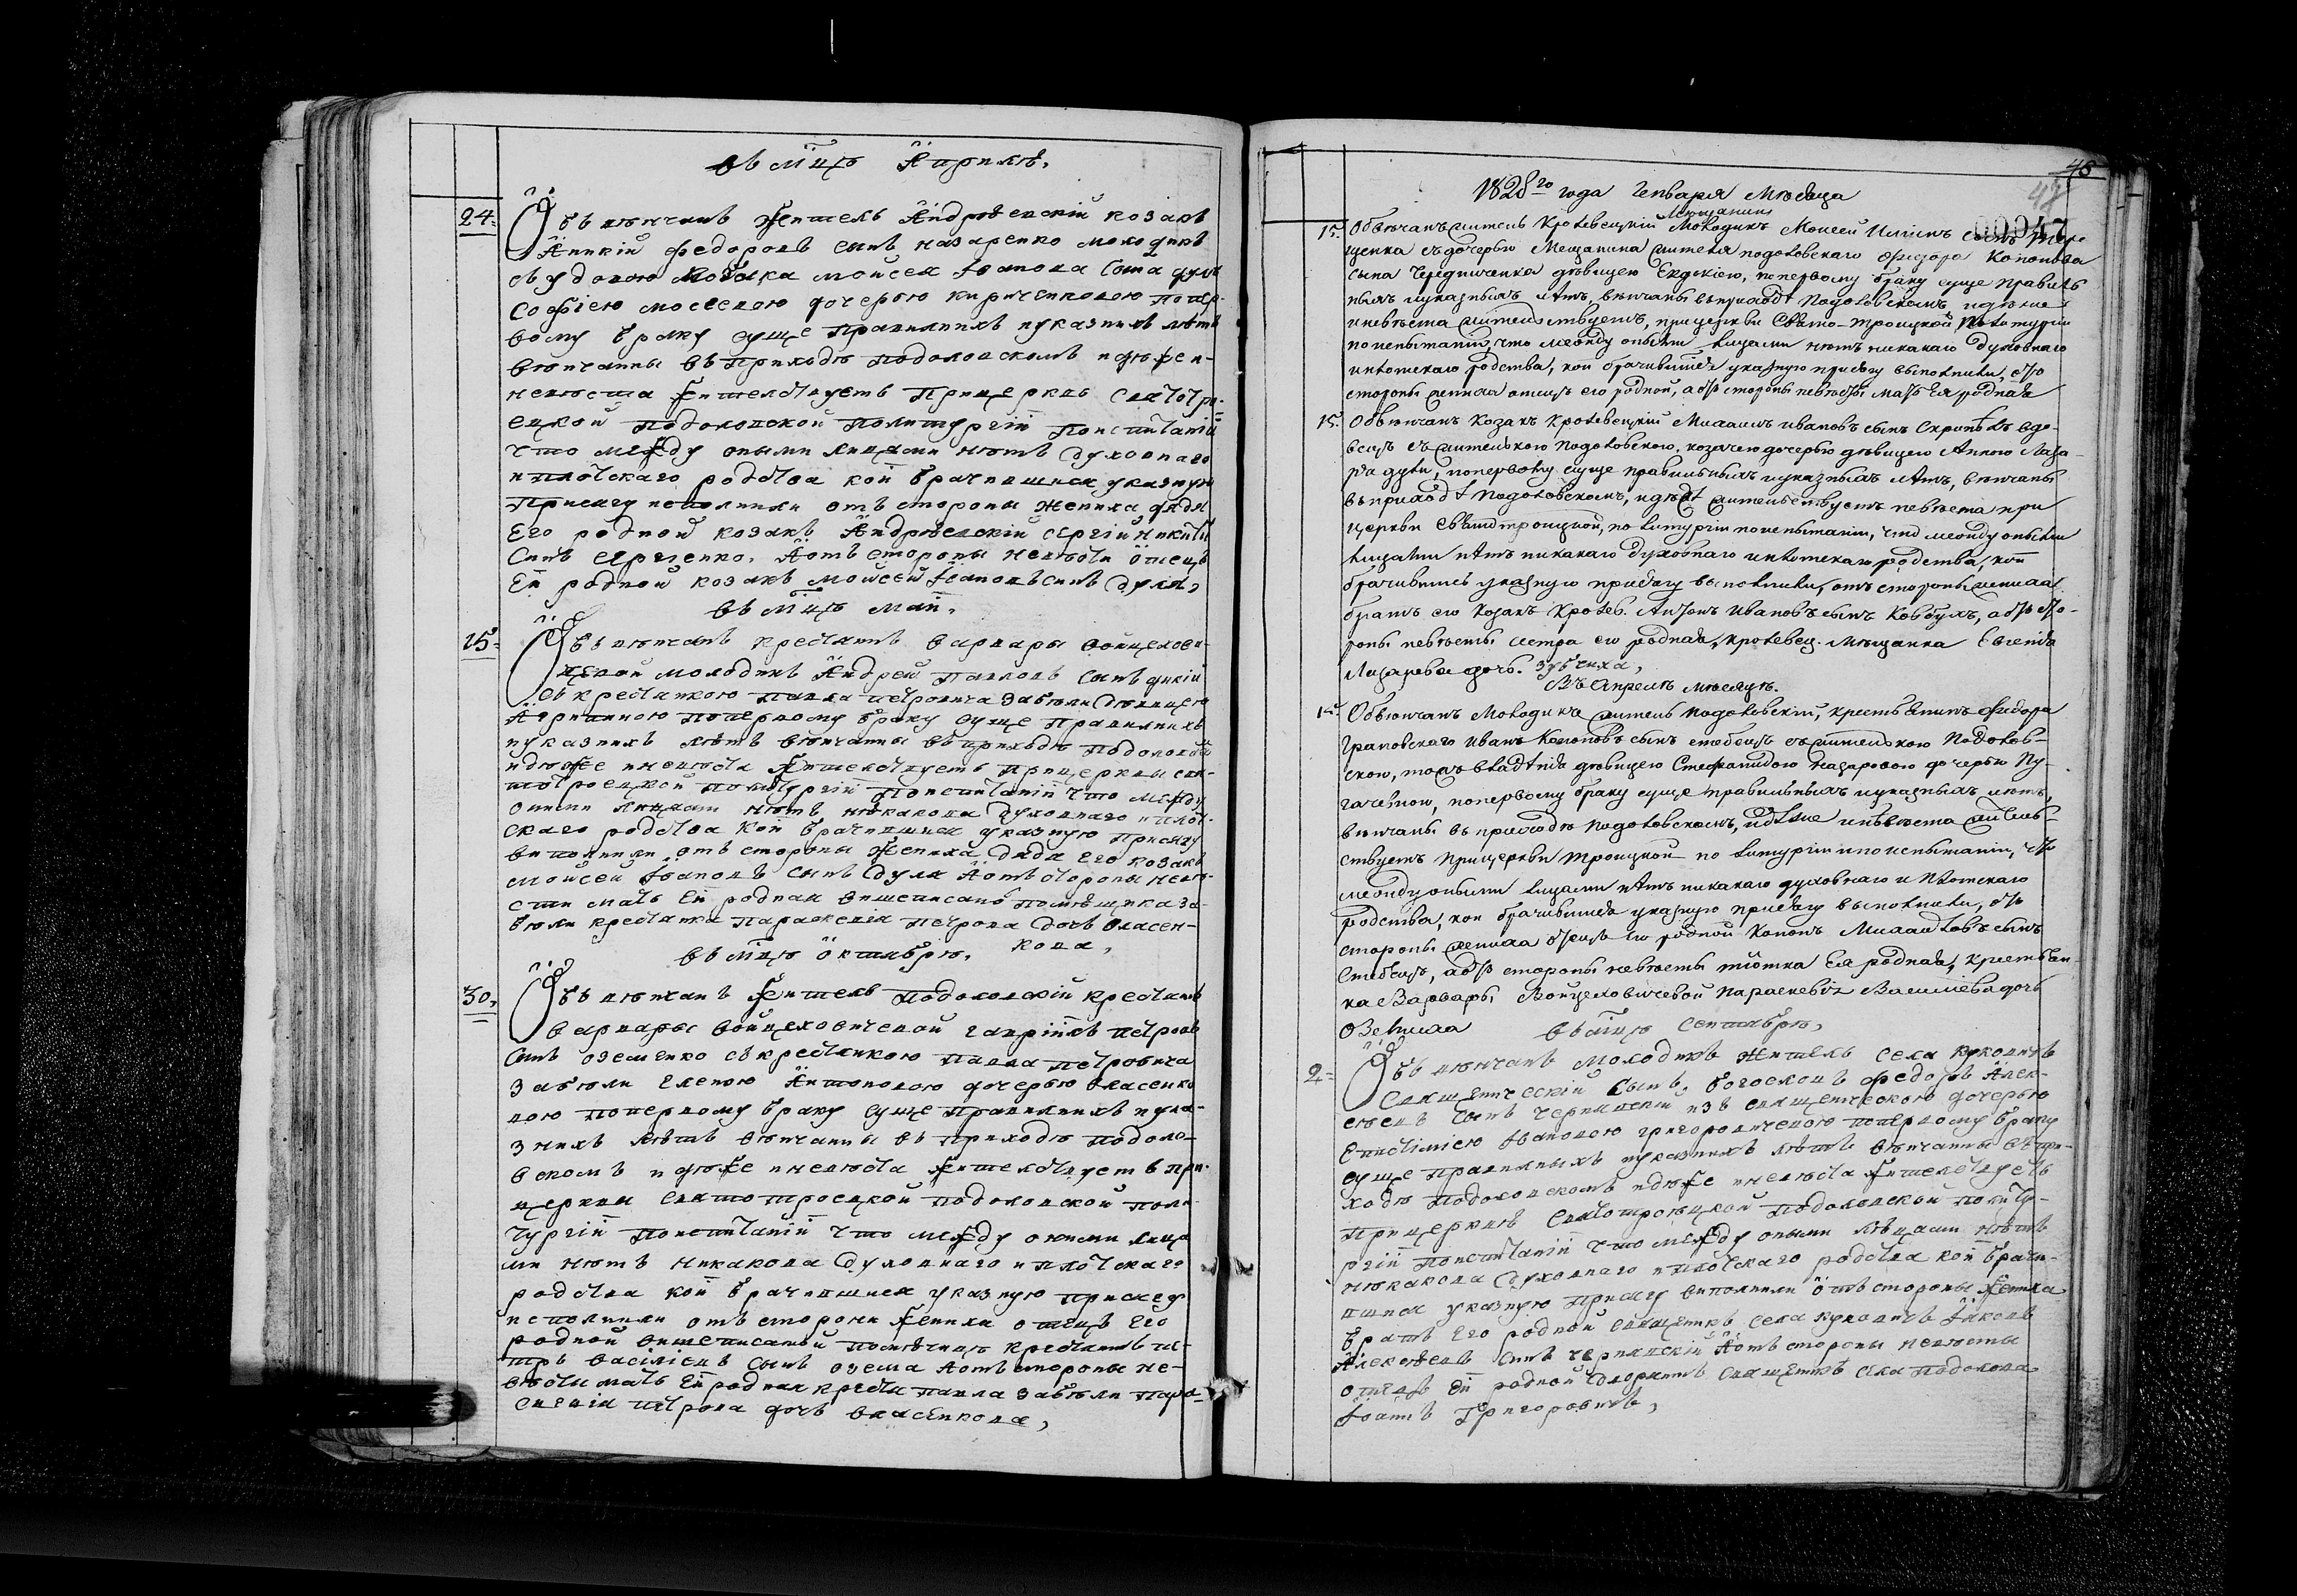 въ мцѣ Априлѣ.
24.
Обвѣнчанъ житель Андрѣевскій козакъ
Аникій Федоровъ сынъ Назаренко молодикъ
съ удовою козака Мойсея Іванова сына Дуля
Софіею Мосеевою дочерью Кириченковою попер-
вому браку суще правилнихъ и указнихъ лѣтъ
вѣнчанны въ приходѣ Подоловскомъ идѣ же и
невѣста жителствуетъ при церквѣ Святотро-
ецкой Подоловской по литургіи по испитаніи
что между оными лицами нѣтъ духовнаго
и плотскаго родства кои брачившися указную
присягу исполнили отъ стороны жениха дядя
Его родной козакъ Андрѣевскій Сергій Никитинъ
синъ Сергіенко, А отъ стороны невѣсти отецъ
Ей родной козакъ Мойсей Івановъ синъ Дуля,
въ мцѣ маи,
15.
Обвѣнчанъ крестянинъ Варвары Войцехови-
чевой молодикъ Андрей Павловъ сынъ дикій
съ крестянкою Павла Петровича Забѣли дѣвицею
Агрипиною попервому браку суще правилнихъ
и указнихъ лѣтъ вѣнчанны въ приходѣ Подоловском
идѣже и невѣста жителствуетъ при церквы Свя-
тотроецкой по литургіи по испитаніи что между
оними лицами нѣтъ нѣкакова духовнаго и плот-
скаго родства кои брачившися указную присягу
виполнили отъ стороны жениха дядя Его козакъ
Мойсей Івановъ сынъ Дуля А отъ стороны невѣ-
сти мать Ей родная вишеписанъ помѣщика За-
бѣли крестянка Параскевія Петрова дочь Власен-
кова,
въ мцѣ Октябрѣ.
30,
Обвѣнчанъ житель Подоловскій крестянинъ
Варвары Войцеховичевой Гавріилъ Петровъ
синъ Оземенко съ крестянкою Павла Петровича
Забѣли Еленою Антоновою дочерью Власенко-
вою попервому браку суще правилнихъ и ука-
знихъ лѣтъ вѣнчанны въ приходѣ Подоло-
вскомъ идѣже и невѣста жителствуетъ при
церквы Святотроецкой Подоловской по ли-
тургіи по испитаніи что между оними лица-
ми нѣтъ никакова духовнаго и плотскаго
родства кои брачившися указную присягу
исполнили отъ сторони жениха отецъ Его
родной вишеписаной помѣщици крестянинъ Пе-
тръ Василіевъ сынъ Озема А отъ стороны не-
вѣсти мать Ей родная крести Павла Забѣли Пара-
скевія Петрова дочь Власенкова,
48
47
00047
1828го года Генваря Мѣсяца
15.
Мѣщанинъ
Обвѣнчанъ житель Кролевецкій Молодикъ Моисей Ильинъ сынъ Тере-
щенка съ дочерью Мещанина жителя Подоловскаго Федора Кононова
сына Чередниченка дѣвицею Евдокіею, по первому браку суще правиль-
ныхъ и указныхъ лѣтъ, вѣнчаны въ приходѣ Подоловскомъ, идѣ же
и невѣста жительствуетъ, при церкви Свято-Троицкой, По литургіи
по испытаніи, что между оными лицами нѣтъ никакаго духовнаго
и плотскаго родства, кои брачившися указную присягу выполнили, отъ
стороны жениха отецъ его родной, а отъ стороны невѣсты мать Ея родная
15.
Обвѣнчанъ Козакъ Кролевецкій Михаилъ Ивановъ сынъ вдо-
вецъ съ жителькою Подоловскою, козачею дочерью дѣвицею Анною Лаза-
по первому суще правильныхъ и указныхъ лѣтъ, вѣнчаны
въ приходѣ Подоловскомъ, идѣже жительствуетъ невѣста при
церкви Святотроицкой, по литургіи по испытаніи, что между оными
лицами нѣтъ никакаго духовнаго и плотскаго родства, кои
брачившись указную присягу выполнили, отъ стороны жениха
братъ его Козакъ Кролев. Антонъ Ивановъ сынъ а отъ сто-
роны невѣсты сестра ею родная, Кролевец. Мѣщанка Евгенія
Лазарева дочь. Зубчиха,
Въ Апрелѣ мѣсяцѣ.
15.
Обвѣнчанъ Молодикъ житель Подоловскій, крестьянинъ Федора
Грановскаго Иванъ Кононовъ сынъ съ жителькою Подолов-
скою, тогожъ владѣнія дѣвицею Стефанидою Назаровою дочерью Пу-
гачевною, по первому браку суще правильныхъ и указныхъ лѣтъ,
вѣнчаны въ приходѣ Подоловскомъ, идѣже и невѣста житель-
ствуетъ При церкви Троицкой по литургіи и по испытаніи, что
между оными лицами нѣтъ никакаго духовнаго и Плотскаго
родства, кои брачившися указную присягу выполнили, отъ
стороны жениха отецъ его родной Кононъ Михайловъ сынъ
а отъ стороны невѣсты тіотка Ея родная, крестьян-
ка Варвары Войцеховичевой Параскевія Василіева дочь
Оземиха
въ мцѣ Сентябрѣ,
2.
Обвѣнчанъ молодикъ житель Села Куковичъ
Священическій сынъ, богословъ Федоръ Алек-
сѣевъ сынъ Чернявскій изъ священическою дочерью
Епистиміею Івановою Григоровичевою попервому браку
суще правилныхъ и указнихъ лѣтъ вѣнчанны въ при-
ходѣ Подоловскомъ идѣже и невѣста жителствуетъ
при церквѣ Святотроецкой Подоловской по литу-
ргіи по испитаніи что между оными лѣцами нѣтъ
нѣкакова духовнаго и плотскаго родства кои брачи-
вшися указную присягу виполнили Отъ стороны жениха
братъ Его родной священикъ села Куковичъ Іаковъ
Алексѣевъ синъ Чернявскій А отъ стороны невѣсты
отецъ Ей родной священикъ села Подолова
Іоаннъ Григоровичъ,